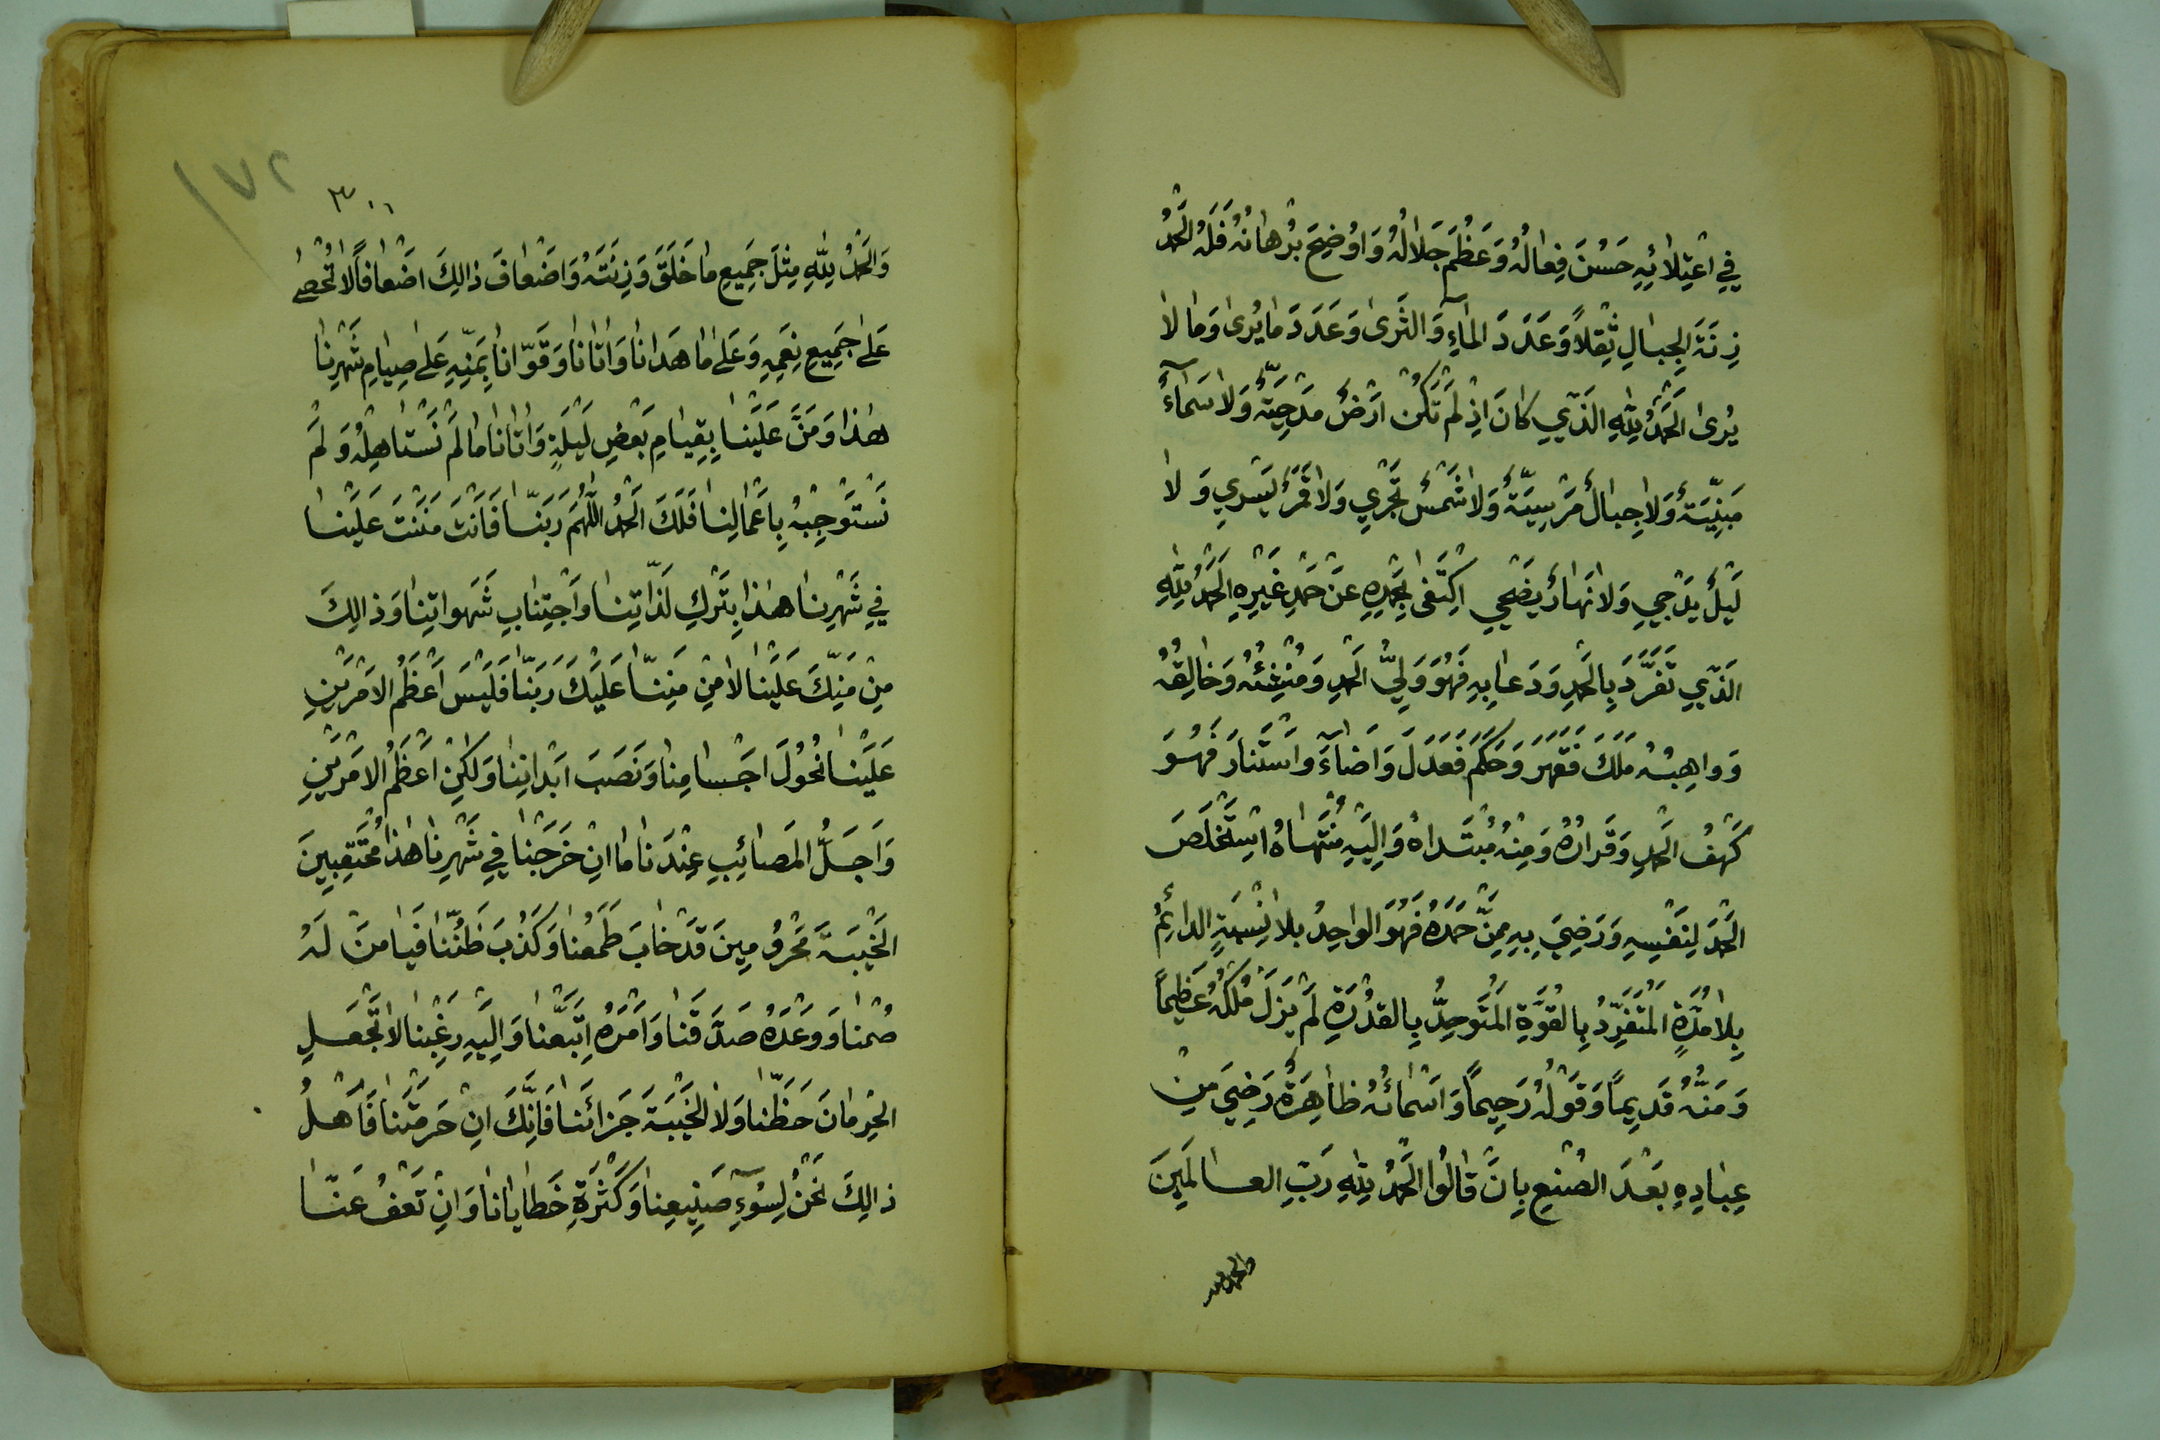 فِي اعْتِلَائِهِ حَسُنَ فِعَالُهُ وَعَظُمَ جَلَالُهُ وَاوُضِحَ بُرْهَانُهُ فَلَهُ الْحَمْدُ
زِنَةَ الْجِبَالِ ثِقْلاً وَعَدَدَ الْمَاءِ وَالثَّرَىٰ وَعَدَدَ مَا يُرَىٰ وَمَا لَا
يُرَىٰ الْحَمْدُ لِلّٰهِ الَّذِي كَانَ اِذْ لَمْ تَكُنْ اَرْضٌ مَدْحِيَّةٌ وَلَا سَمَآءٌ
مَبْنِيَّةٌ وَلَا جِبَالٌ مَرْسِيَّةٌ وَلَا شَمْسٌ تَجْرِي وَلَا قَمَرٌ يَسْرِي وَلَا
لَيْلٌ يَدْجِي وَلَا نَهَارٌ يَضْحِي اكْتَفَىٰ بِحَمْدِهِ عَنْ حَمْدِ غَيْرِهِ الْحَمْدُ لِلّٰهِ
الَّذِي تَفَرَّدَ بِالْحَمْدِ وَدَعَا بِهِ فَهُوَ وَلِيُّ الْحَمْدِ وَمُنْشِئُهُ وَخَالِقُهُ
وَوَاهِبُهُ مَلَكَ فَقَهَرَ وَحَكَمَ فَعَدَلَ وَاَضَآءَ وَاسْتَنَارَ فَهُوَ
كَهْفُ الْحَمْدِ وَقَرَارُهُ وَمِنْهُ مُبْتَدَاهُ وَاِلَيْهِ مُنْتَهَاهُ اسْتَخْلَصَ
الْحَمْدَ لِنَفْسِهِ وَرَضِيَ بِهِ مِمَّنْ حَمَدَهُ فَهُوَ الْوَاحِدُ بِلَا نِسْبَةٍ الدَائِمُ
بِلَا مُدَّةٍ الْمُتَفَرِّدُ بِالْقُوَّةِ الْمُتَوَحِّدُ بِالْقُدْرَةِ لَمْ يَزَلْ مُلْكُهُ عَظِيماً
وَمَنُّهُ قَدِيماً وَقَوْلُهُ رَحِيماً وَاَسْمَائُهُ ظَاهِرَةٌ رَضِيَ مِنْ
عِبَادِهِ بَعْدَ الصُّنْعِ بِاَنْ قَالُوا الْحَمْدُ لِلّٰهِ رَبِّ الْعَالَمِينَ
والحمد لله
١٧٢
٣٠١
وَالْحَمْدُ لِلّٰهِ مِثْلَ جَمِيعِ مَا خَلَقَ وَزِنَتَهُ وَاَضْعَافَ ذَالِكَ اَضْعَافاً لَا تُحْصَىٰ
عَلَىٰ جَمِيعِ نِعَمِهِ وَعَلَىٰ مَا هَدَانَا وَاٰتَانَا وَقَوّٰانَا بِمَنِّهِ عَلَىٰ صِيَامِ شَهْرِنَا
هٰذَا وَمَنَّ عَلَيْنَا بِقِيَامِ بَعْضِ لَيْلَةٍ وَاٰتَانَا مَا لَمْ نَسْتَاهِلْهُ وَلَمْ
نَسْتَوْجِبْهُ بِاَعْمَالِنَا فَلَكَ الْحَمْدُ اللّٰهُمَّ رَبَّنَا فَاَنْتَ مَنَنْتَ عَلَيْنَا
فِي شَهْرِنَا هٰذَا بِتَرْكِ لَذَّاتِنَا وَاجْتِنَابِ شَهَوَاتِنَا وَذَالِكَ
مِنْ مَنِّكَ عَلَيْنَا لَا مِنْ مَنِّنَا عَلَيْكَ رَبَّنَا فَلَيْسَ اَعْظَمُ الْاَمْرَيْنِ
عَلَيْنَا نُحُولَ اَجْسَامِنَا وَنَصَبَ اَبْدَانِنَا وَلٰكِنْ اَعْظَمُ الْاَمْرَيْنِ
وَاَجَلُّ الْمَصَائِبِ عِنْدَنَا مَا اِنْ خَرَجْنَا فِي شَهْرِنَا هٰذَا مُحْتَقِبِينَ
الْخَيْبَةَ مَحْرُومِينَ قَدْ خَابَ طَمَعُنَا وَكَذُبَ ظَنُّنَا فَيَا مَنْ لَهُ
صُمْنَا وَوَعْدَهُ صَدَّقْنَا وَاَمْرَهُ اِتَّبَعْنَا وَاِلَيْهِ رَغِبْنَا لَا تَجْعَلِ
الْحِرْمَانَ حَظَّنَا وَلَا الْخَيْبَةَ جَزَائَنَا فَاِنَّكَ اِنْ حَرَمْتَنَا فَاَهْلُ
ذَالِكَ نَحْنُ لِسُوْءِ صَنِيعِنَا وَكَثْرَةِ خَطَايَانَا وَاِنْ تَعْفُ عَنَّا